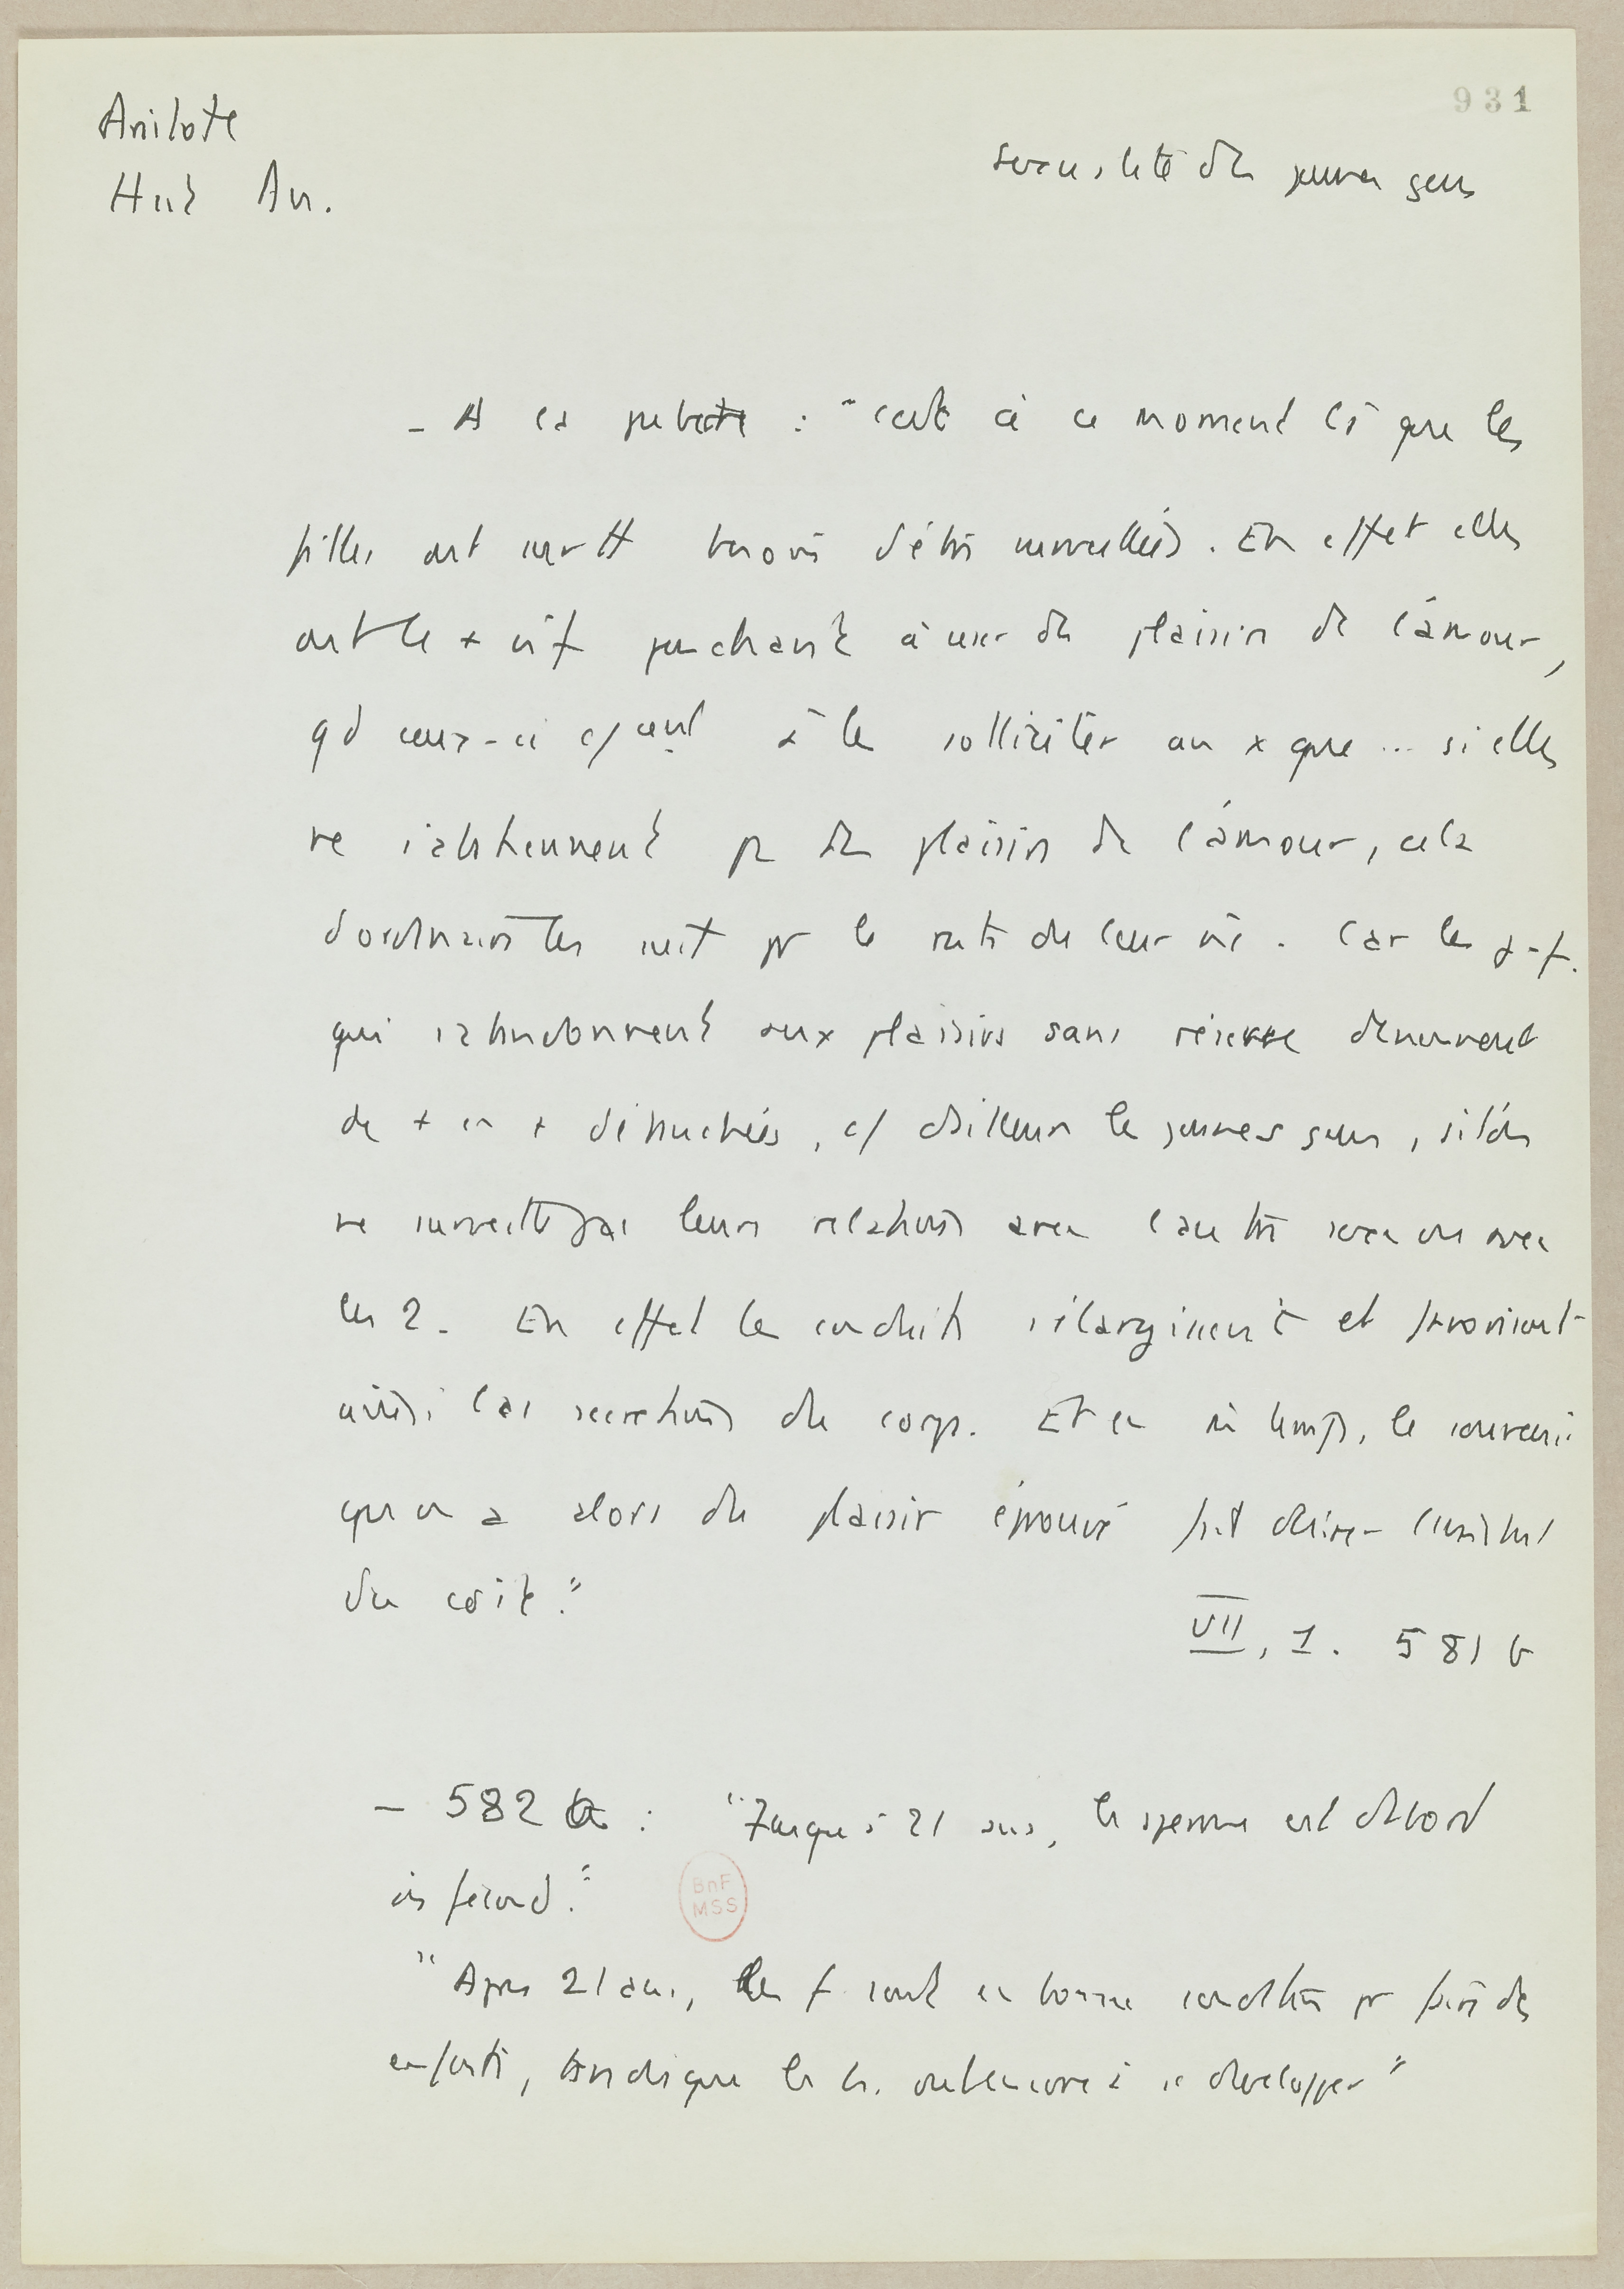 931
Aristote
Hist An.
sexualité des jeunes gens
- A la puberté : "c'est à ce moment là que les
filles ont surtt besoin d'être surveillées. En effet elles
ont le + vif penchant à user des plaisirs de l'amour,
qd ceux-ci c/cent à les solliciter au x que ... si elles
ne s'abstiennent p des plaisirs de l'amour, cela
d'ordinaire les suit pr le reste de leur vie. Car les j-f.
qui s'abandonnent aux plaisirs sans réserve deviennent
de + en + débauchées, c/ d'ailleurs les jeunes gens, si l'on
ne surveille pas leurs relations avec l'autre sexe ou avec
les 2. En effet les conduits s'élargissent et favorisent
ainsi les secretions du corps. Et en m temps, le souvenir
qu'on a alors du plaisir éprouvé fait désirer
du coït."
VII, 1. 581 b
- 582 a : "Jusqu'à 21 ans, le sperme est d'abord
infécond."
"Apres 21 ans, les f sont en bonne condition pr faire des
enfants, tandis que les h. ont encore à se developper"
BnF
MSS